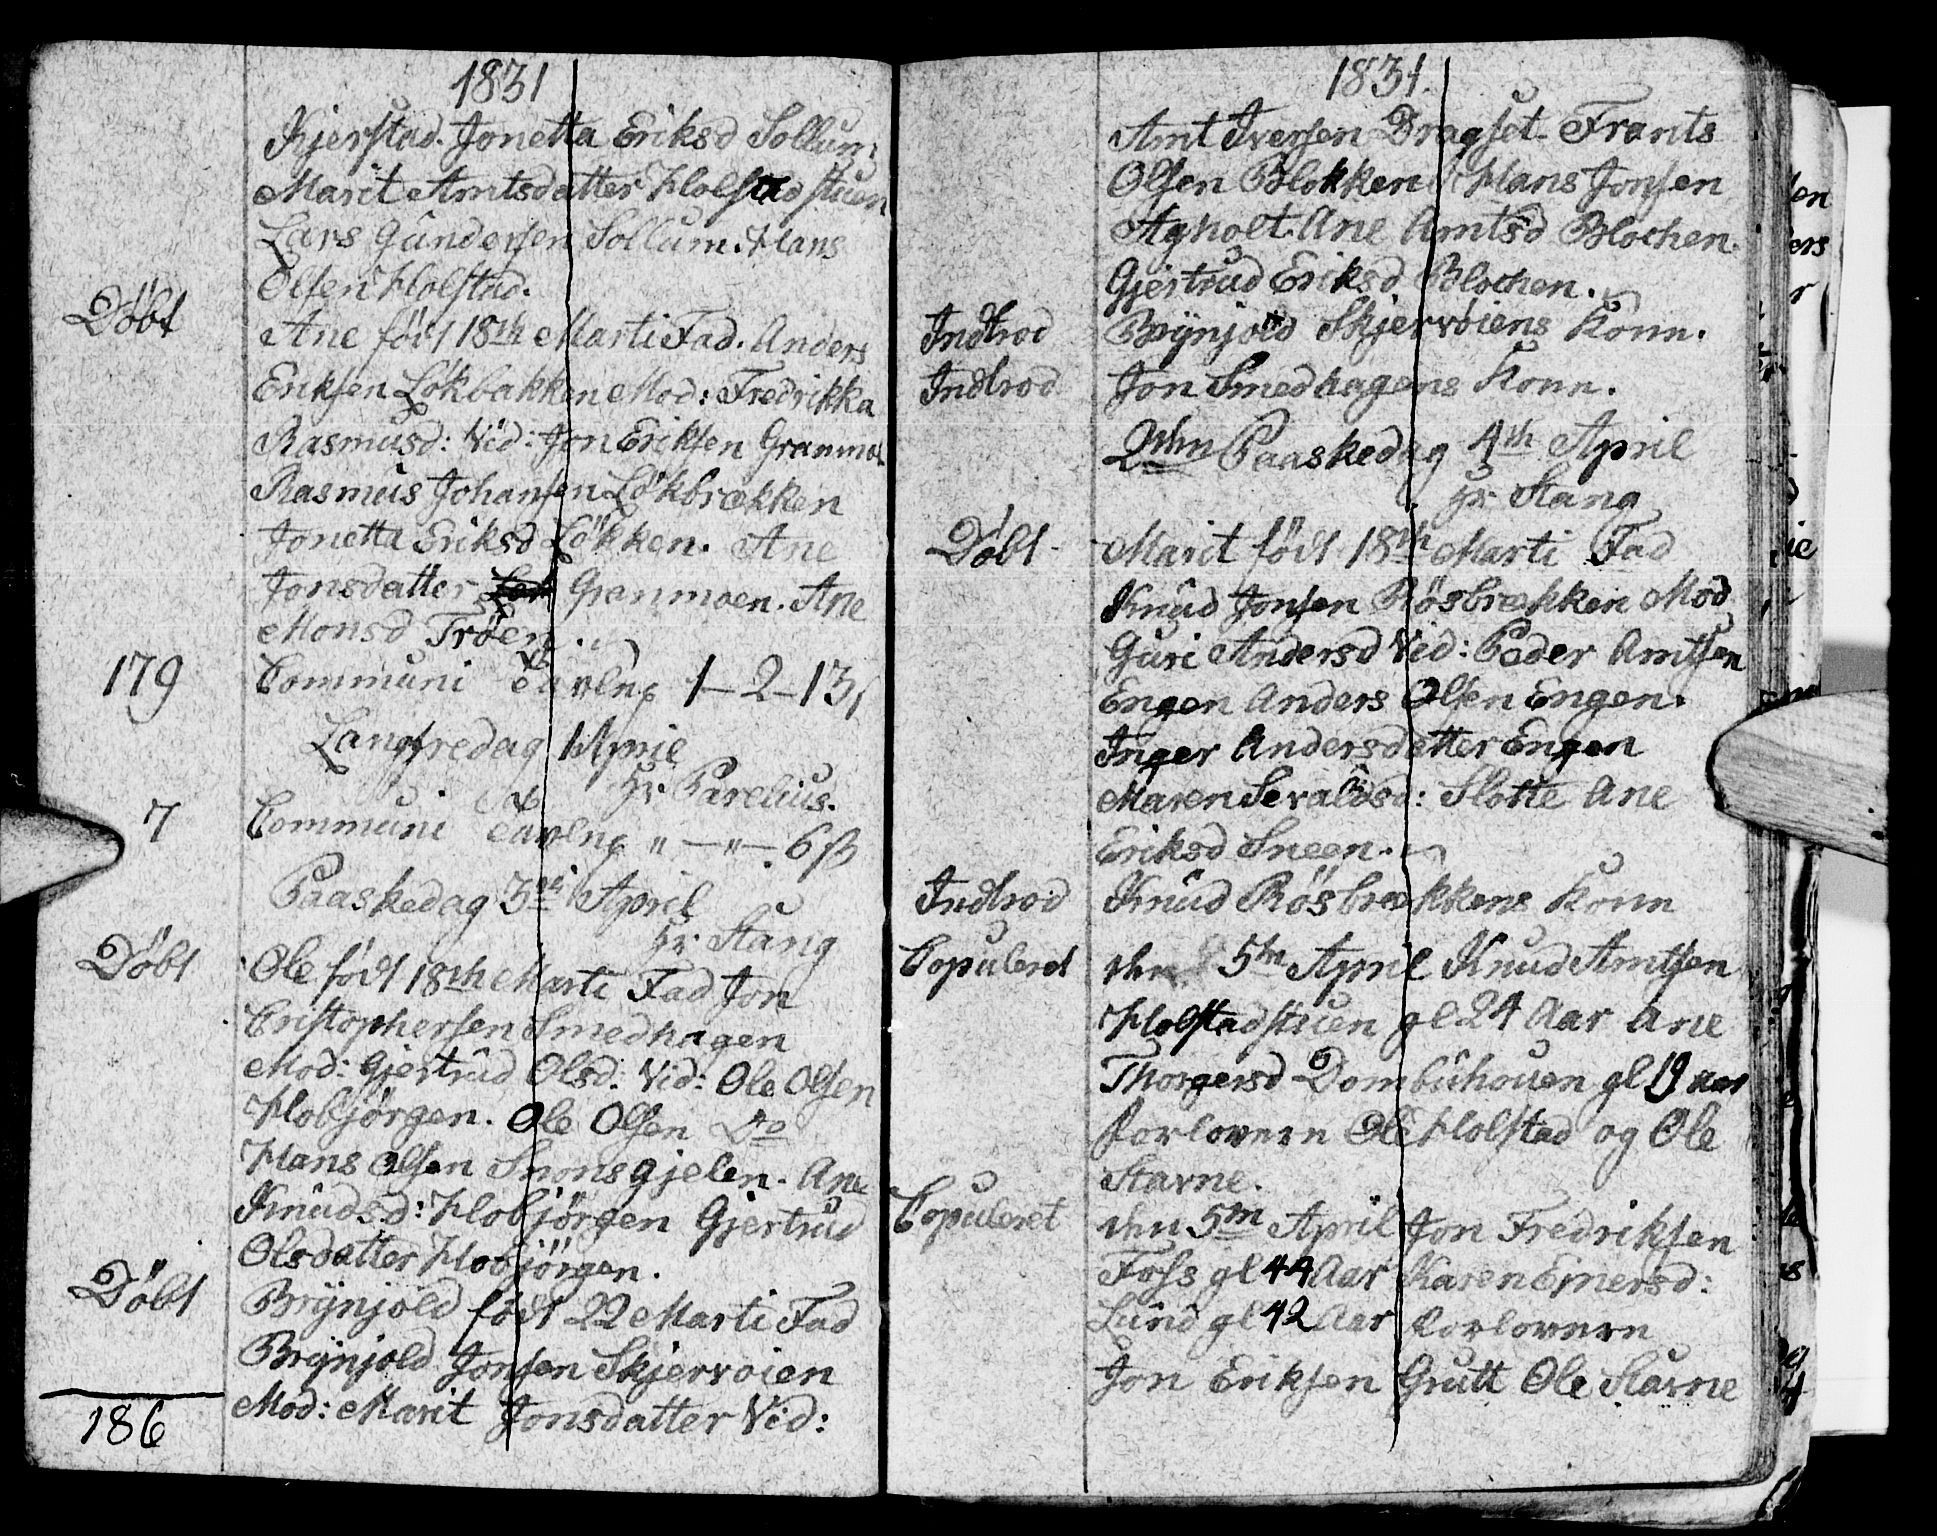 1831
Kjerstad. Jonetta Eriksd Sollum:
Marit Amtsdatter Holstadstuen
Lars Gundersen Sollum. Hans
Olsen Holstad.
Döbt Ane föd 18th Marti Fad. Anders
Eriksen Lökbakken Mod: Fredrikka
Rasmusd: Vid: Jon Eriksen Granmo
Rasmus Johansen Lökbrækken
Jonetta Eriksd Lökken. Ane
Jonsdatter Granmoen. Ane
Monsd Tröen.
179 Communi Tavlng 1-2-13
Langfredag 1 April
Hr. Parelius.
7 Communi Tavlng " - " - 6 ß
Paaskedag 3di April
Hr. Stang
Döbt Ole födt 18th Marti Fad Jon
Cristophersen Smedhagen
Mod: Gjertrud Olsd. Vid: Ole Olsen
Hobjörgen. Ole Olsen Do
Hans Olsen Snonsgjelen. Ane
Knudsd: Hobjörgen Gjertrud
Olsdatter Hobjörgen.
Döbt Brynjold födt 22 Marti Fad
Brynjold Jonsen Skjervöien
186 Mod: Marit Jonsdatter Vid:
1831.
Amt Iversen Dragset. Frants
Olsen Blokken Hans Jonsen
Agholt. Ane Amtsd Blochen.
Gjertrud Eriksd Blochen.
Indtrod Brynjold Skjervöiens Konn.
Indtrod Jon Smedhagens Konn.
2den Paaskedag 4th April
Hr. Stang
Döbt Marit födt 18th Marti Fad
Knud Jonsen Rösbrækken Mod
Guri Andersd Vid: Peder Amtsen
Engen Anders Olsen Engen.
Inger Andersdatter Engen
Maren Sevaldsd: Slotte Ane
Eriksd Sneen.
Indtrod Knud Rösbrækkens Konn
Copuleret den 5th April Knud Amtsen
Holstadstuen gl 24 Aar Ane
Thorgersd Dombuhouen gl 19 aar
Forlovern Ole Holstad og Ole
Stavne.
Copuleret den 5th April Jon Fredriksen
Foss gl 44 Aar Karen Einersd:
Lund gl 42 Aar Forlovern
Jon Eriksen Grutt Ole Stavne